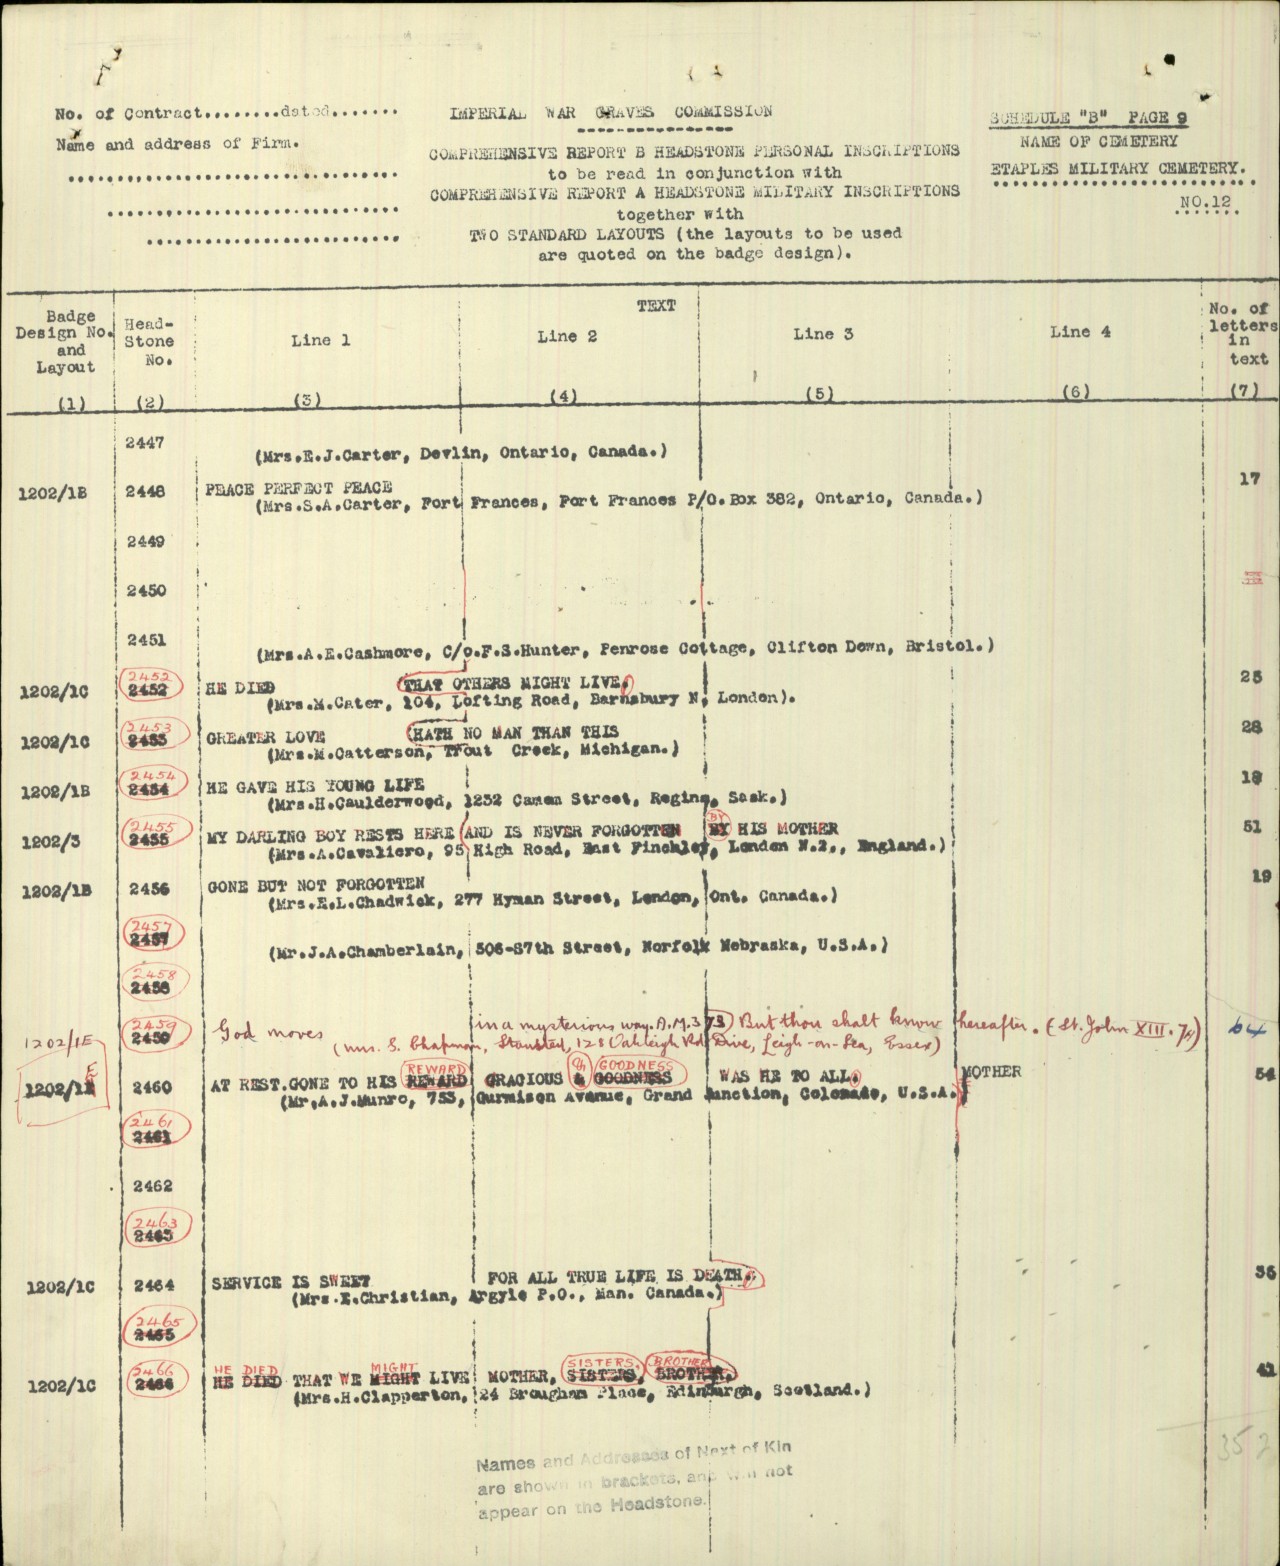 No. of Contract........dated.......
Name and address of Firm.
IMPERIAL WAR GRAVES COMMISSION
COMPREHENSIVE REPORT B HEADSTONE PERSONAL INSCRIPTIONS
to be read in conjunction with
COMPREHENSIVE REPORT A HEADSTONE MILITARY INSCRIPTIONS
together with
TWO STANDARD LAYOUTS (the layouts to be used
are quoted on the badge design).
SCHEDULE "B" PAGE 9
NAME OF CEMETERY
ETAPLES MILITARY CEMETERY.
NO.12
Badge Design No. and Layout
Head-Stone No.
TEXT
Line 1 Line 2 Line 3 Line 4
No. of letters in text
(1) (2) (3) (4) (5) (6) (7)
2447
(Mrs.E.J.Carter, Devlin, Ontario, Canada.)
1202/1B 2448 PEACE PERFECT PEACE 17
(Mrs.S.A.Carter, Fort Frances, Fort Frances P/O. Box 382, Ontario, Canada.)
2449
2450
2451
(Mrs.A.E.Cashmore, C/o.F.S.Hunter, Penrose Cottage, Clifton Down, Bristol.)
2452
1202/1C 2452 HE DIED THAT OTHERS MIGHT LIVE. 25
(Mrs.M.Cater, 104, Lofting Road, Barnsbury N, London).
2453
1202/1C 2453 GREATER LOVE HATH NO MAN THAN THIS 28
(Mrs.M.Catterson, Trout Creek, Michigan.)
2454
1202/1B 2454 HE GAVE HIS YOUNG LIFE 18
(Mrs.H.Caulderwood, 1232 Camen Street, Regina, Sask.)
2455 BY
1202/3 2455 MY DARLING BOY RESTS HERE AND IS NEVER FORGOTTEN BY HIS MOTHER 51
(Mrs.A.Cavaliero, 95 High Road, East Finchley, London N.2., England.)
1202/1B 2456 GONE BUT NOT FORGOTTEN 19
(Mrs.E.L.Chadwick, 277 Hyman Street, London, Ont. Canada.)
2457
2457
(Mr.J.A.Chamberlain, 506-S7th Street, Norfolk Nebraska, U.S.A.)
2458
2458
2459
1202/1E 2459 God moves in a mysterious way. A.M.373 But thou shalt know hereafter. (St. John XIII. 7) 64
(Mrs. S. Chapman, Stansted, 128 Oakleigh Pk Drive, Leigh-on-Sea, Essex)
E REWARD GOODNESS
1202/1 2460 AT REST.GONE TO HIS REWARD GRACIOUS & GOODNESS WAS HE TO ALL. MOTHER 54
(Mr.A.J.Munro, 753, Gunnison Avenue, Grand Junction, Colorado, U.S.A.)
2461
2461
2462
2463
2463
1202/1C 2464 SERVICE IS SWEET FOR ALL TRUE LIFE IS DEATH. 35
(Mrs.E.Christian, Argyle P.O., Man. Canada.)
2465
2465
2466 HE DIED MIGHT SISTERS, BROTHER
1202/1C 2466 HE DIED THAT WE MIGHT LIVE MOTHER, SISTERS, BROTHER. 41
(Mrs.H.Clapperton, 24 Brougham Place, Edinburgh, Scotland.)
352
Names and Addresses of Next of Kin
are shown in brackets, and will not
appear on the Headstone.